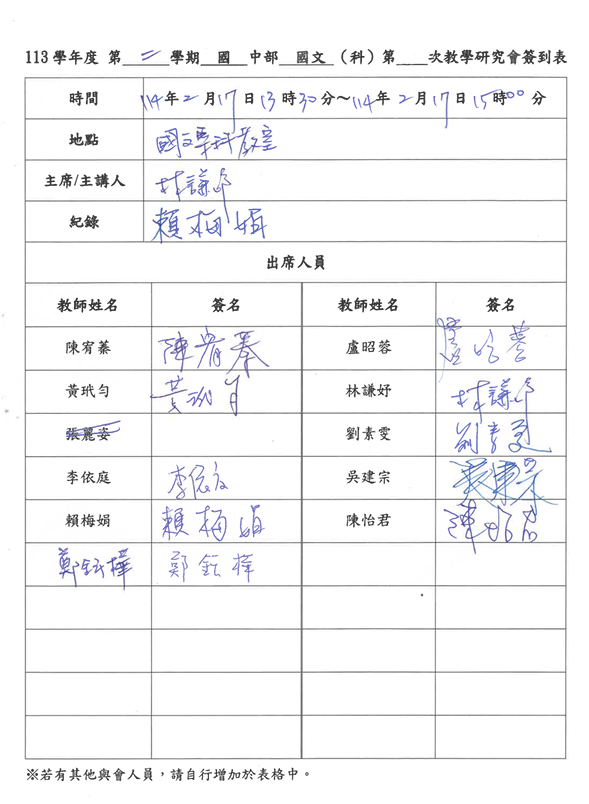 113學年度 第 二 學期 國 中部 國文（科）第____次教學研究會簽到表
時間 114年2月17日13時30分～114年2月17日15時00分
地點 國文學科教室
主席/主講人 林謙妤
紀錄 賴梅娟
出席人員
教師姓名 簽名 教師姓名 簽名
陳宥蓁 陳宥蓁 盧昭蓉 盧昭蓉
黃玳勻 黃玳勻 林謙妤 林謙妤
張麗姿 劉素雯 劉素雯
李依庭 李依庭 吳建宗
賴梅娟 賴梅娟 陳怡君 陳怡君
鄭鈺樺 鄭鈺樺
※若有其他與會人員，請自行增加於表格中。